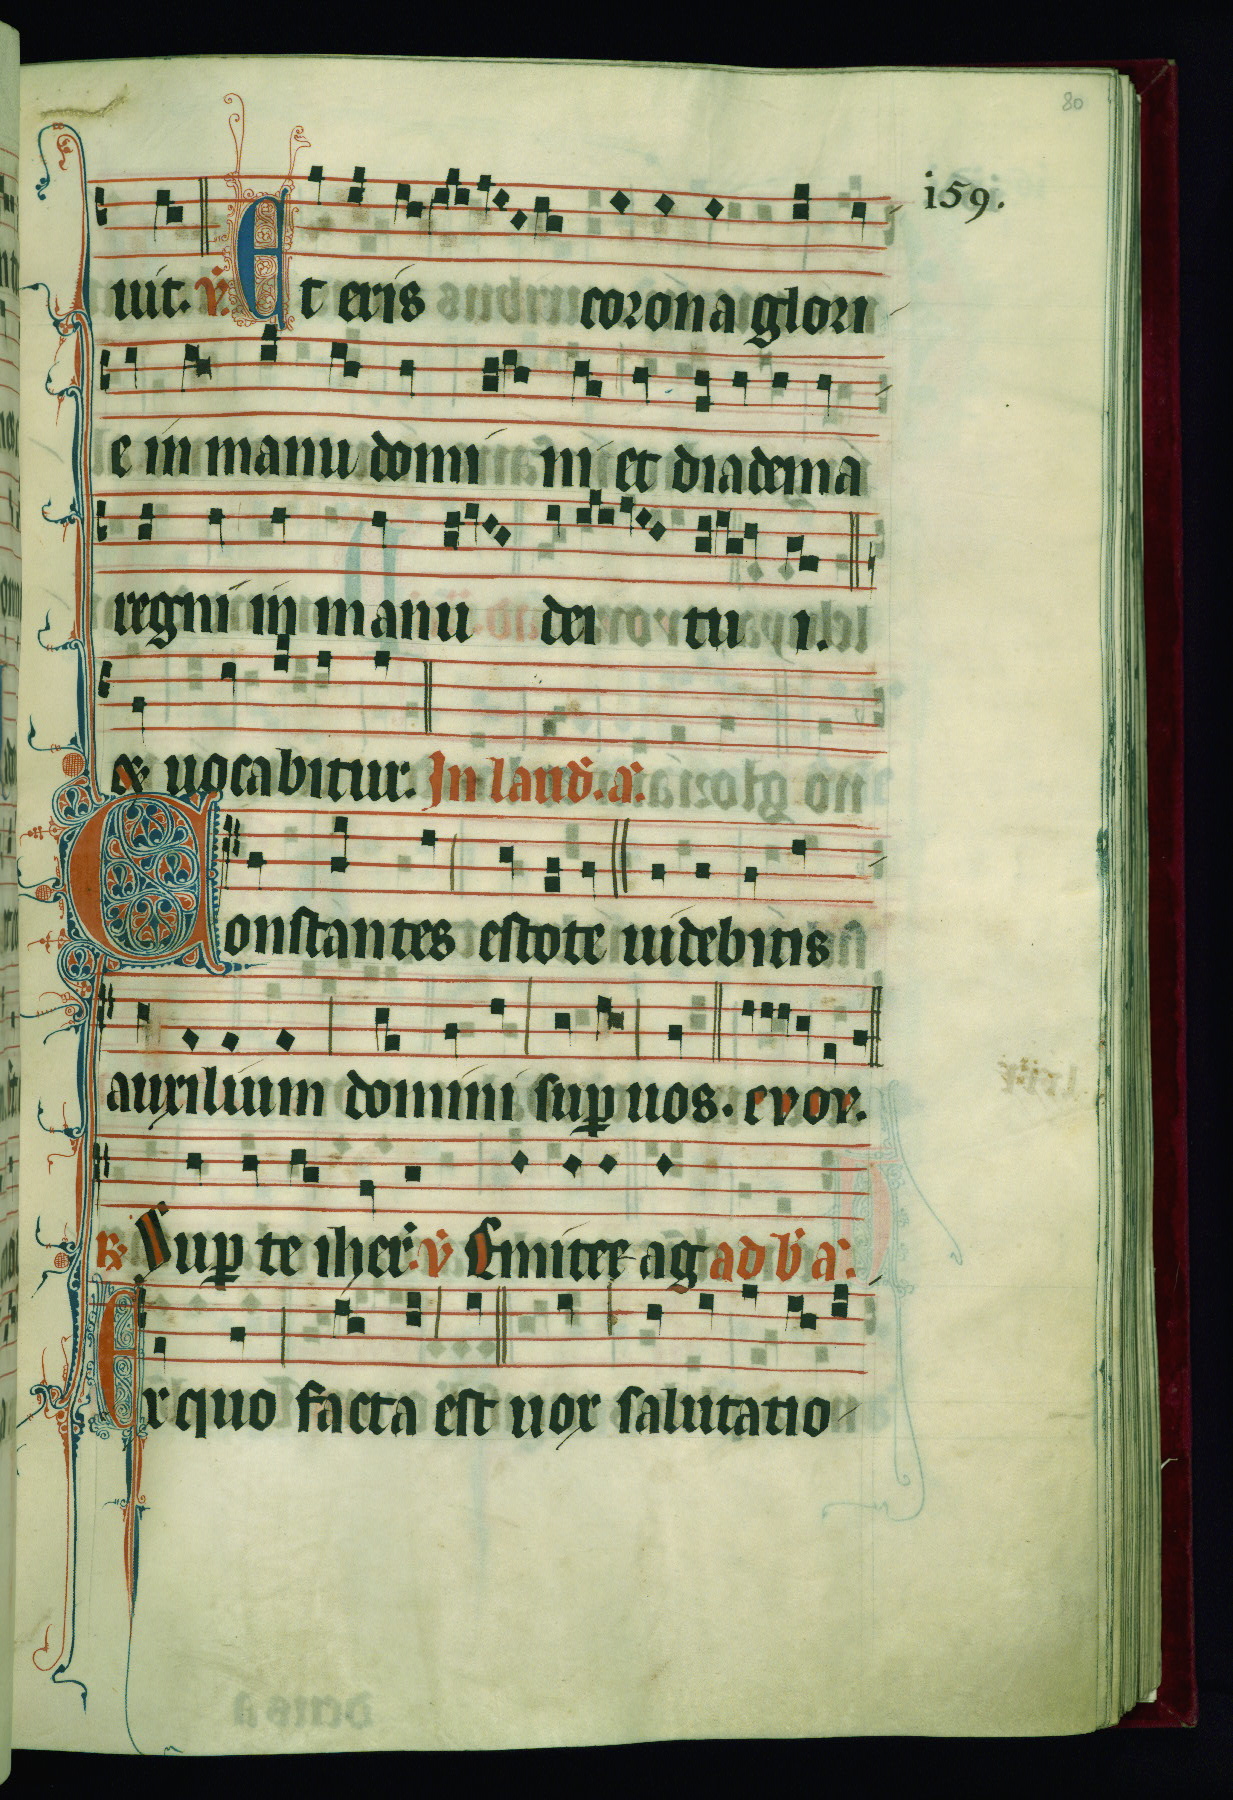 80
i59.
uit. v. Et eris corona glori
e in manu domini et diadema
regni in manu dei tui.
& uocabitur. In laud. a.
Constantes estote uidebitis
auxilium domini sup uos. evov.
R Sup te iher. v Emitte ag ad b a.
Ex quo facta est uox salutatio